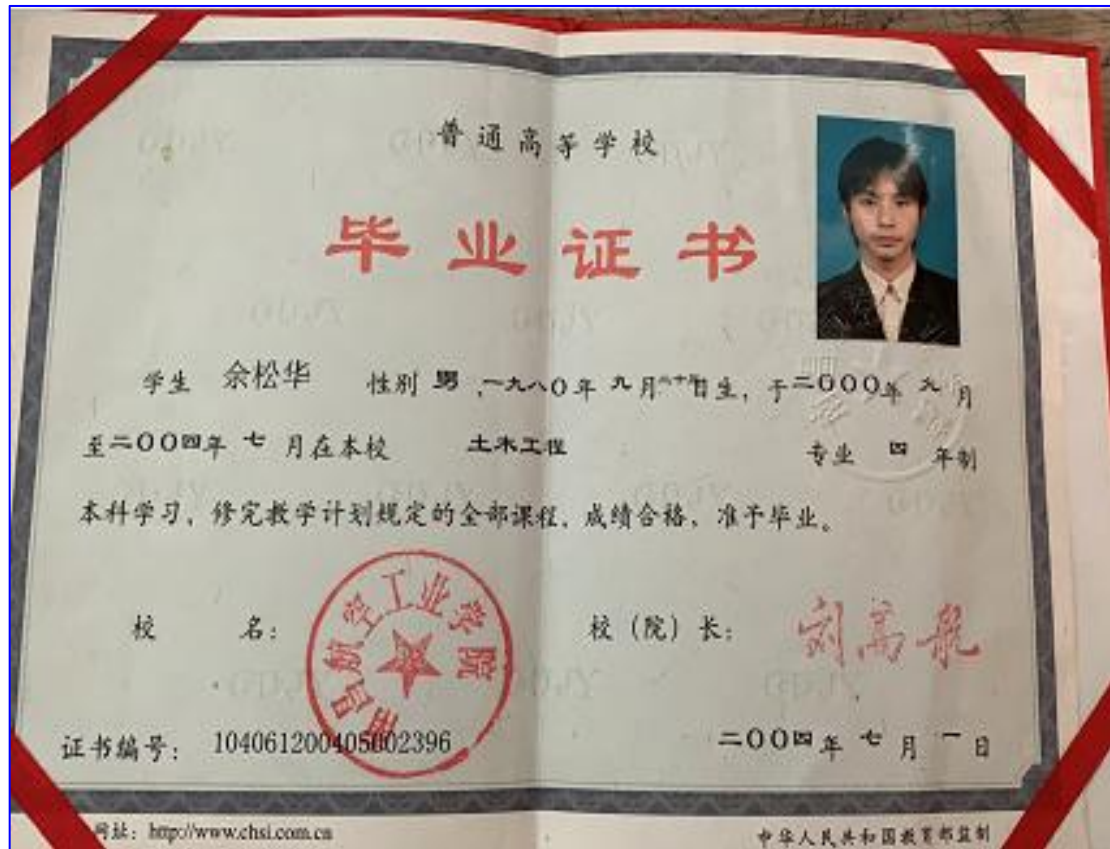 普通高等学校
毕业证书
学生 余松华 性别 男，一九八〇年 九月 日生，于二〇〇〇年 九月
至二〇〇四年 七 月在本校 土木工程 专业 四 年制
本科学习，修完教学计划规定的全部课程，成绩合格，准予毕业。
校 名： 南昌航空工业学院 校（院）长： 刘高航
证书编号： 104061200405002396 二〇〇四年 七 月 一 日
网址：http://www.chsi.com.cn 中华人民共和国教育部监制